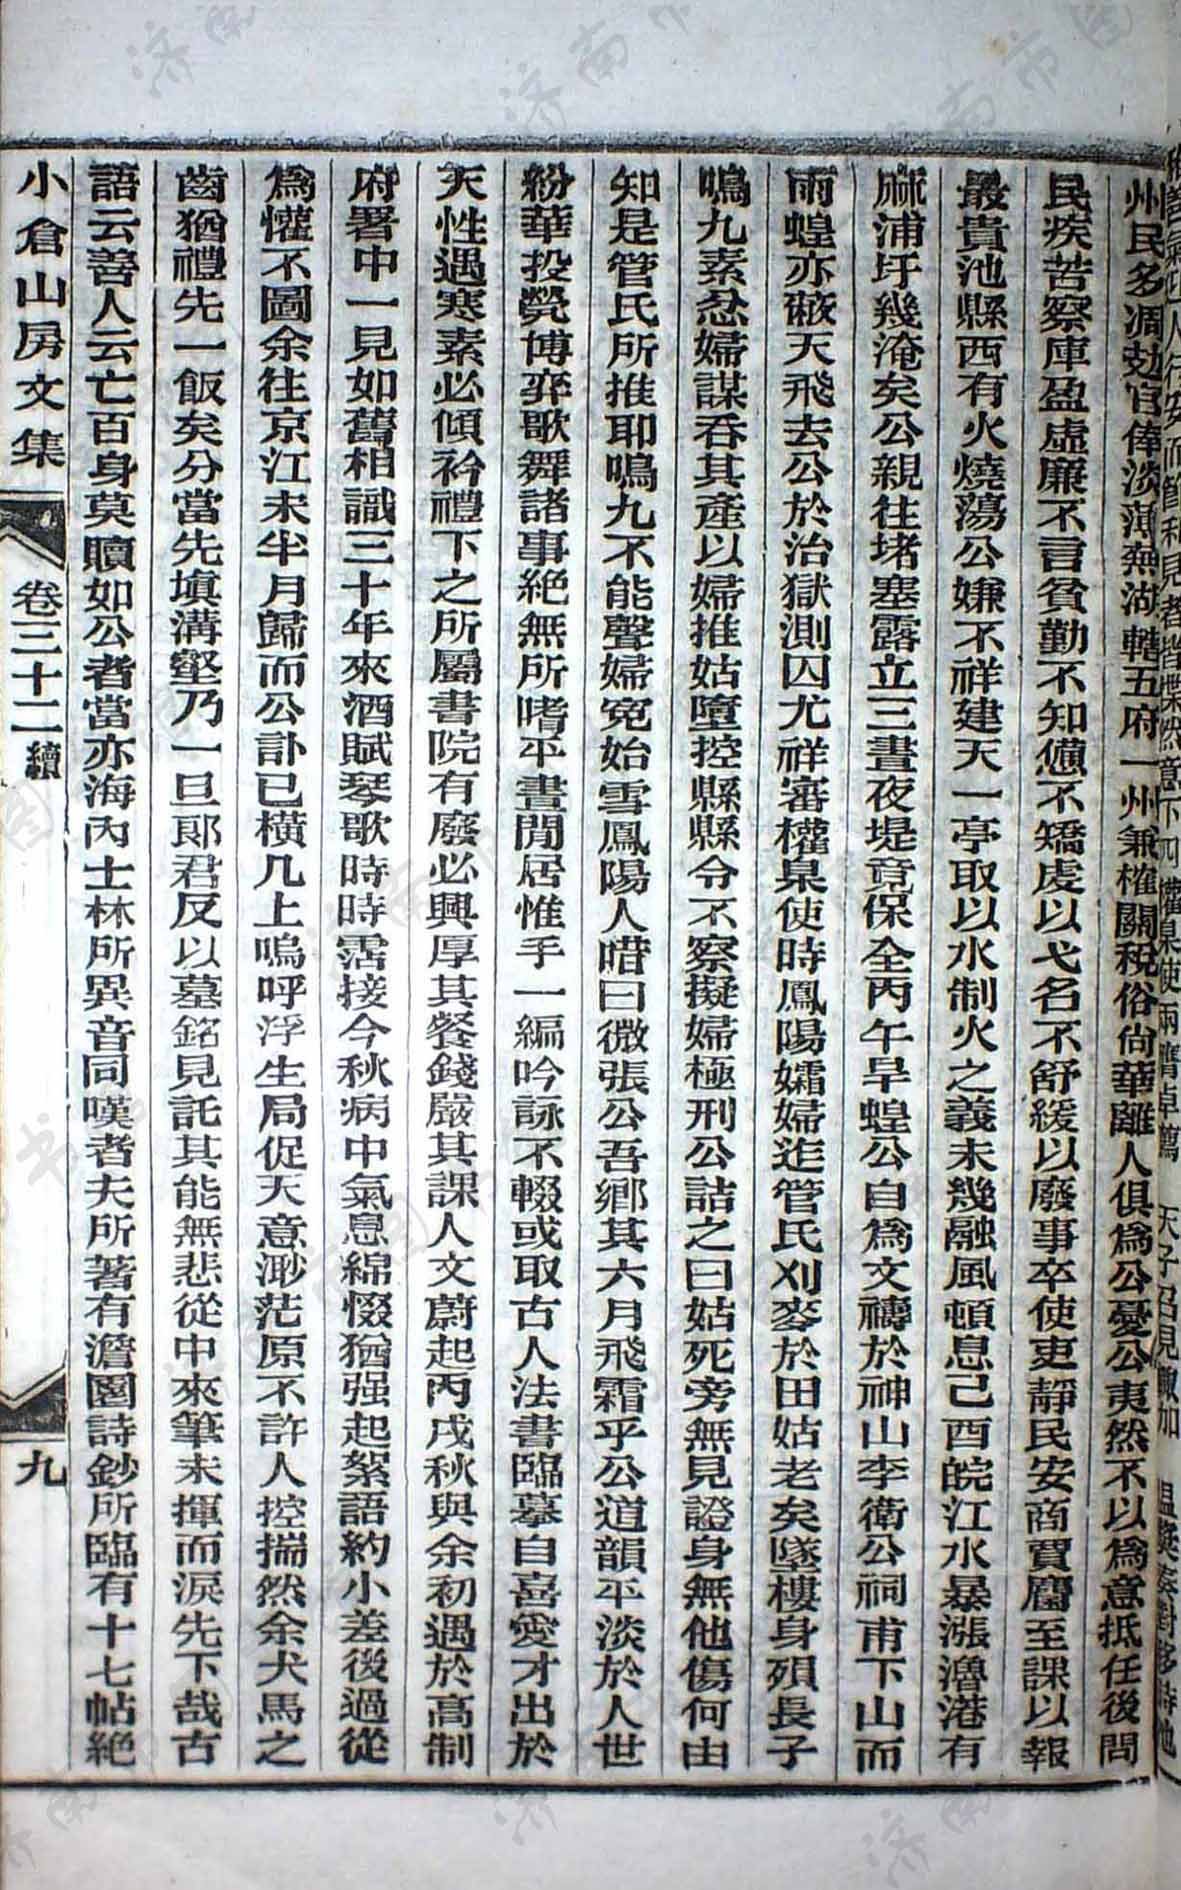 州民多凋攰官俸淡薄蕪湖轄五府一州兼榷關稅俗尙華離人俱爲公憂公夷然不以爲意抵任後問
民疾苦察庫盈虛廉不言貧勤不知憊不矯虔以弋名不舒緩以廢事卒使吏靜民安商賈麕至課以報
最貴池縣西有火燒蕩公嫌不祥建天一亭取以水制火之義未幾融風頓息己酉皖江水暴漲瀂港有
麻浦圩幾淹矣公親往堵塞露立三晝夜堤竟保全丙午旱蝗公自爲文禱於神山李衛公祠甫下山而
雨蝗亦蔽天飛去公於治獄測囚尤祥審權臬使時鳳陽孀婦迮管氏刈麥於田姑老矣墜樓身殞長子
鳴九素忿婦謀吞其產以婦推姑墮控縣縣令不察擬婦極刑公詰之曰姑死旁無見證身無他傷何由
知是管氏所推耶鳴九不能聲婦冤始雪鳳陽人唶曰微張公吾鄉其六月飛霜乎公道韻平淡於人世
紛華投㷀博弈歌舞諸事絕無所嗜平晝閒居惟手一編吟詠不輟或取古人法書臨摹自喜愛才出於
天性遇寒素必傾衿禮下之所屬書院有廢必興厚其餐錢嚴其課人文蔚起丙戌秋與余初遇於高制
府署中一見如舊相識三十年來酒賦琴歌時時霑接今秋病中氣息綿惙猶强起絮語約小差後過從
爲懽不圖余往京江未半月歸而公訃已橫几上嗚呼浮生局促天意渺茫原不許人控揣然余犬馬之
齒猶禮先一飯矣分當先塡溝壑乃一旦郞君反以墓銘見託其能無悲從中來筆未揮而淚先下哉古
語云善人云亡百身莫贖如公者當亦海內士林所異音同嘆者夫所著有澹園詩鈔所臨有十七帖絕
小倉山房文集
卷三十二續
九
济南市图